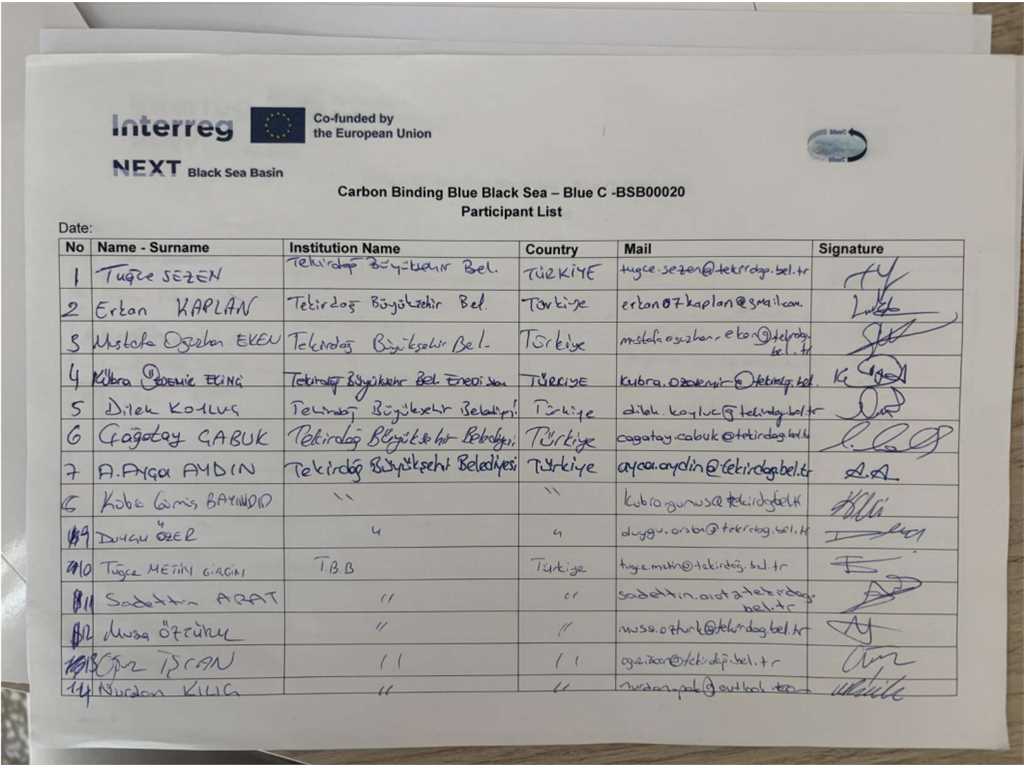 Interreg
Co-funded by
the European Union
NEXT Black Sea Basin
Carbon Binding Blue Black Sea – Blue C -BSB00020
Participant List
Date:
No Name - Surname Institution Name Country Mail Signature
1 Tuğçe SEZEN Tekirdağ Büyükşehir Bel. TÜRKİYE tugce.sezen@tekirdag.bel.tr
2 Erkan KAPLAN Tekirdağ Büyükşehir Bel. Türkiye erkan07kaplan@gmail.com
3 Mustafa Oğuzhan EKEN Tekirdağ Büyükşehir Bel. Türkiye mustafaoguzhan.eken@tekirdag.
bel.tr
4 Kübra ÖZDEMİR EKİNCİ Tekirdağ Büyükşehir Bel. TÜRKİYE kubra.ozdemir@tekirdag.bel.
5 Dilek Tekirdağ Büyükşehir Belediyesi Türkiye
6 Çağatay ÇABUK Tekirdağ Büyükşehir Belediyesi Türkiye cagatay.cabuk@tekirdag.bel.tr
7 A.Ayça AYDIN Tekirdağ Büyükşehir Belediyesi Türkiye ayca.aydin@tekirdag.bel.tr A.A.
8 Gümüş BAYINDIR " " kubra.gumus@tekirdag.bel.tr
9 Duygu ÖZER " "
10 Tuğçe METİN GİRGİN T.B.B Türkiye tugce.metin@tekirdağ.bel.tr
11 Sadettin ARAT " "
bel.tr
12 Musa ÖZTÜRK " " musa.ozturk@tekirdag.bel.tr
13 Oğuz İŞCAN " "
14 Nurdan KILIÇ " "